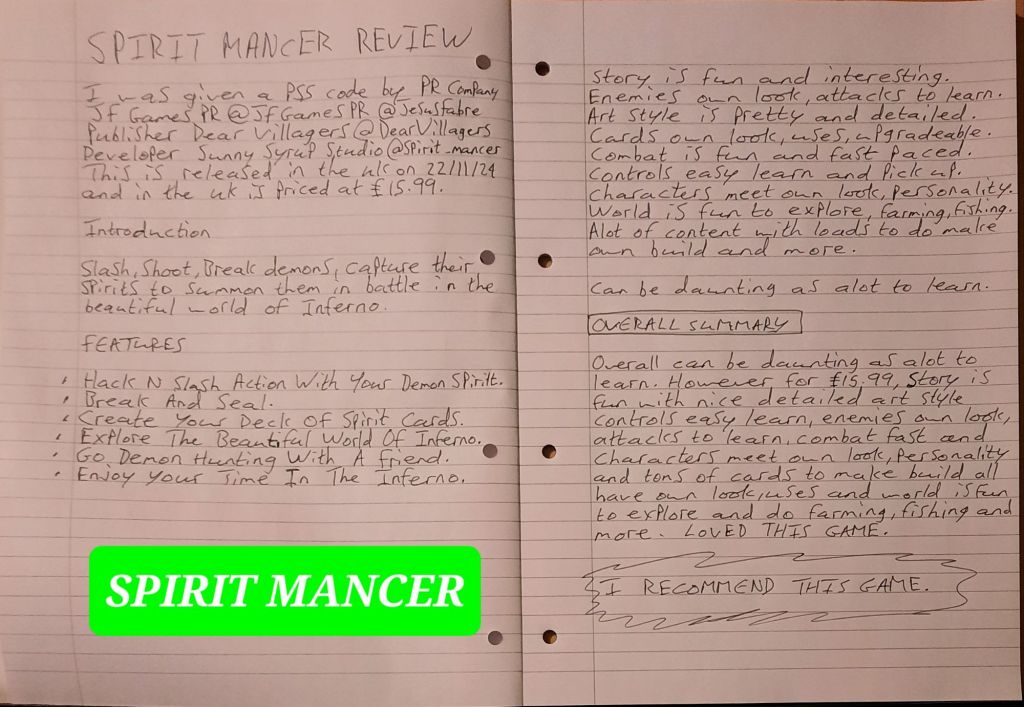 SPIRIT MANCER REVIEW
I was given a PS5 code by PR Company
Jf Games PR @JfGamesPR @Jesusfabre
Publisher Dear Villagers @DearVillagers
Developer Sunny Syrup Studio @Spirit_mancer
This is released in the uk on 22/11/24
and in the uk is priced at £15.99.
Introduction
Slash, Shoot, Break demons, capture their
Spirits to summon them in battle in the
beautiful world of Inferno.
FEATURES
• Hack N Slash Action With Your Demon Spirit.
• Break And Seal.
• Create Your Deck Of Spirit Cards.
• Explore The Beautiful World Of Inferno.
• Go Demon Hunting With A friend.
• Enjoy Your Time In The Inferno.
SPIRIT MANCER
Story is fun and interesting.
Enemies own look, attacks to learn.
Art Style is pretty and detailed.
Cards own look, uses, upgradeable.
Combat is fun and fast paced.
Controls easy learn and pick up.
Characters meet own look, personality.
World is fun to explore, farming, fishing.
Alot of content with loads to do make
own build and more.
Can be daunting as alot to learn.
OVERALL SUMMARY
Overall can be daunting as alot to
learn. However for £15.99, Story is
fun with nice detailed art style
controls easy learn, enemies own look,
attacks to learn, combat fast and
characters meet own look, Personality
and tons of cards to make build all
have own look, uses and world is fun
to explore and do farming, fishing and
more. LOVED THIS GAME.
I RECOMMEND THIS GAME.